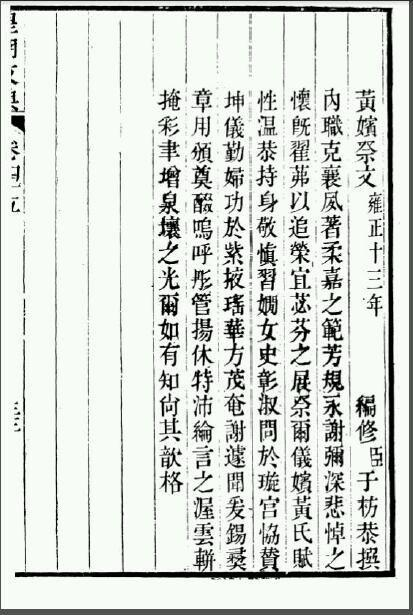 黃嬪祭文 雍正十三年 編修臣于枋恭撰
內職克襄夙著柔嘉之範芳規永謝彌深悲悼之
懷旣翟茀以追榮宜苾芬之展祭爾儀嬪黃氏賦
性温恭持身敬慎習嫻女史彰淑問於璇宫協贊
坤儀勤婦功於紫掖瑤華方茂奄謝遽聞爰錫彞
章用頒奠醊嗚呼彤管揚休特沛綸言之渥雲軿
掩彩聿增泉壤之光爾如有知尙其歆格
皇朝文典 卷五